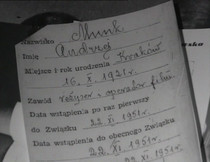 Nazwisko Munk
Imię Andrzej
Miejsce i rok urodzenia Kraków
16. X. 1921 r.
Zawód reżyser i operator film.
Data wstąpienia po raz pierwszy
do Związku 22 XI. 1951 r.
Data wstąpienia do obecnego Związku
22. XI. 1951 r.